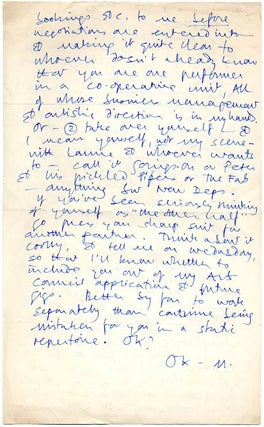 bookings etc. to me before
negotiations are entered into
& making it quite clear to
whoever doesn't already know
that you are one performer
in a co-operative unit, all
of whose business management
& artistic direction is in my hands.
Or – ② take over yourself – &
I mean yourself, not my scene –
with Lannie & whoever wants
to – call it Simpson or Peter
& his pickled Pipers or The Fab
– anything but New Deps.
If you've been seriously thinking
of yourself as "the other half"
Go press your sharp suit for
another partner. Think about it
coolly, & tell me on Wednesday,
so that I'll know whether to
include you out of my Arts
Council application & future
gigs. Better by far to work
separately than continue being
mistaken for you in a static
repertoire. OK?
OK – M.